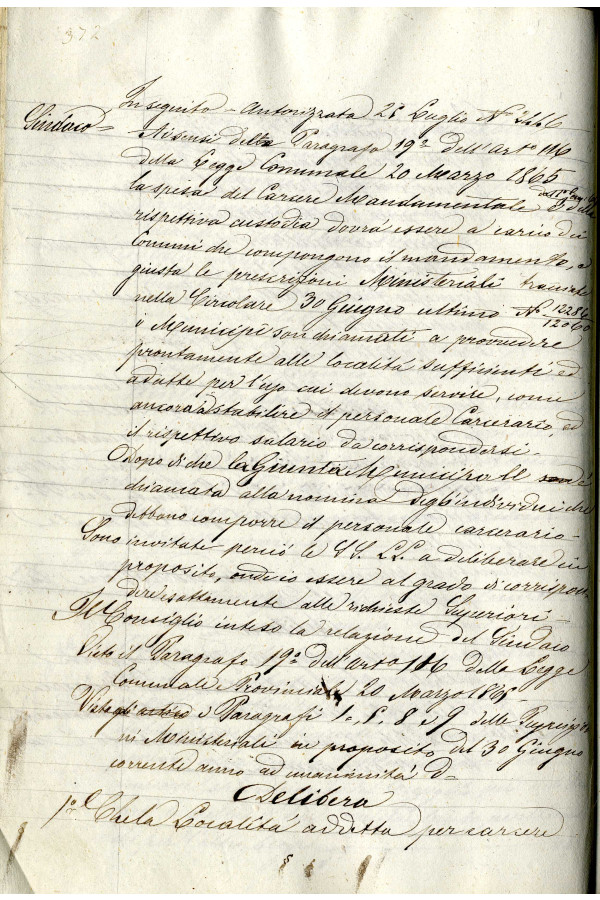 372
In seguito - autorizzata 28 Luglio N° 2446
Sindaco = Ai sensi della Paragrafo 19° dell'arto 116
della Legge Comunale 20 Marzo 1865
la spesa del Carcere Mandamentale e della
rispettiva custodia dovrà essere a carico dei
Comuni che compongono il mandamento, e
giusta le prescrizioni Ministeriali
nella Circolare 30 Giugno ultimo N° 13286
12060
i Municipi son chiamati a provvedere
prontamente alle località sufficienti ed
adatte per l'uso cui devono servire, come
ancora a stabilire il personale Carcerario, ed
il rispettivo salario da corrispondersi -
Dopo di che la Giunta Municipale è
chiamata alla nomina degl'individui che
debbano comporre il personale carcerario -
Sono invitate perciò le SS. LL. a deliberare in
proposito, onde io essere al grado di corrispon
dere esattamente alle richieste Superiori -
Il Consiglio inteso la relazione del Sindaco
Visto il Paragrafo 19° dell'arto 116 della Legge
Comunale e Provinciale 20 Marzo 1865
i Paragrafi 1, 5, 8 e 9 delle
ni Ministeriali in proposito del 30 Giugno
corrente anno ad unanimità
Delibera
1° Che la Località addetta per carcere